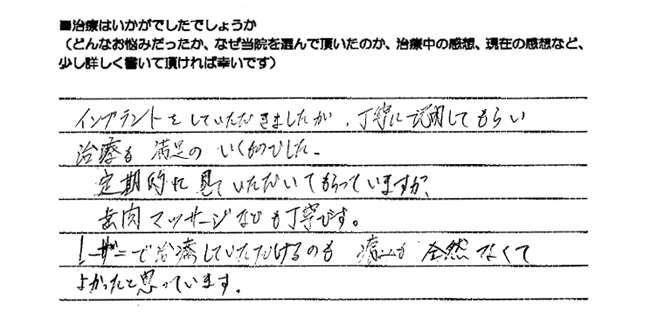 ■治療はいかがでしたでしょうか
(どんなお悩みだったか、なぜ当院を選んで頂いたのか、治療中の感想、現在の感想など、
少し詳しく書いて頂ければ幸いです)
インプラントをしていただきましたが、丁寧に説明してもらい
治療も 満足の いくものでした。
定期的に 見ていただいてもらっていますが、
歯肉マッサージなども丁寧です。
レーザーで治療していただけるのも 痛みが 全然なくて
よかったと思っています。